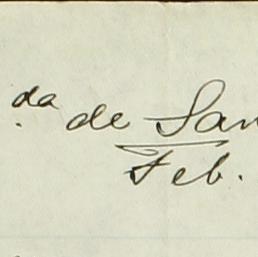 da de San
Feb.